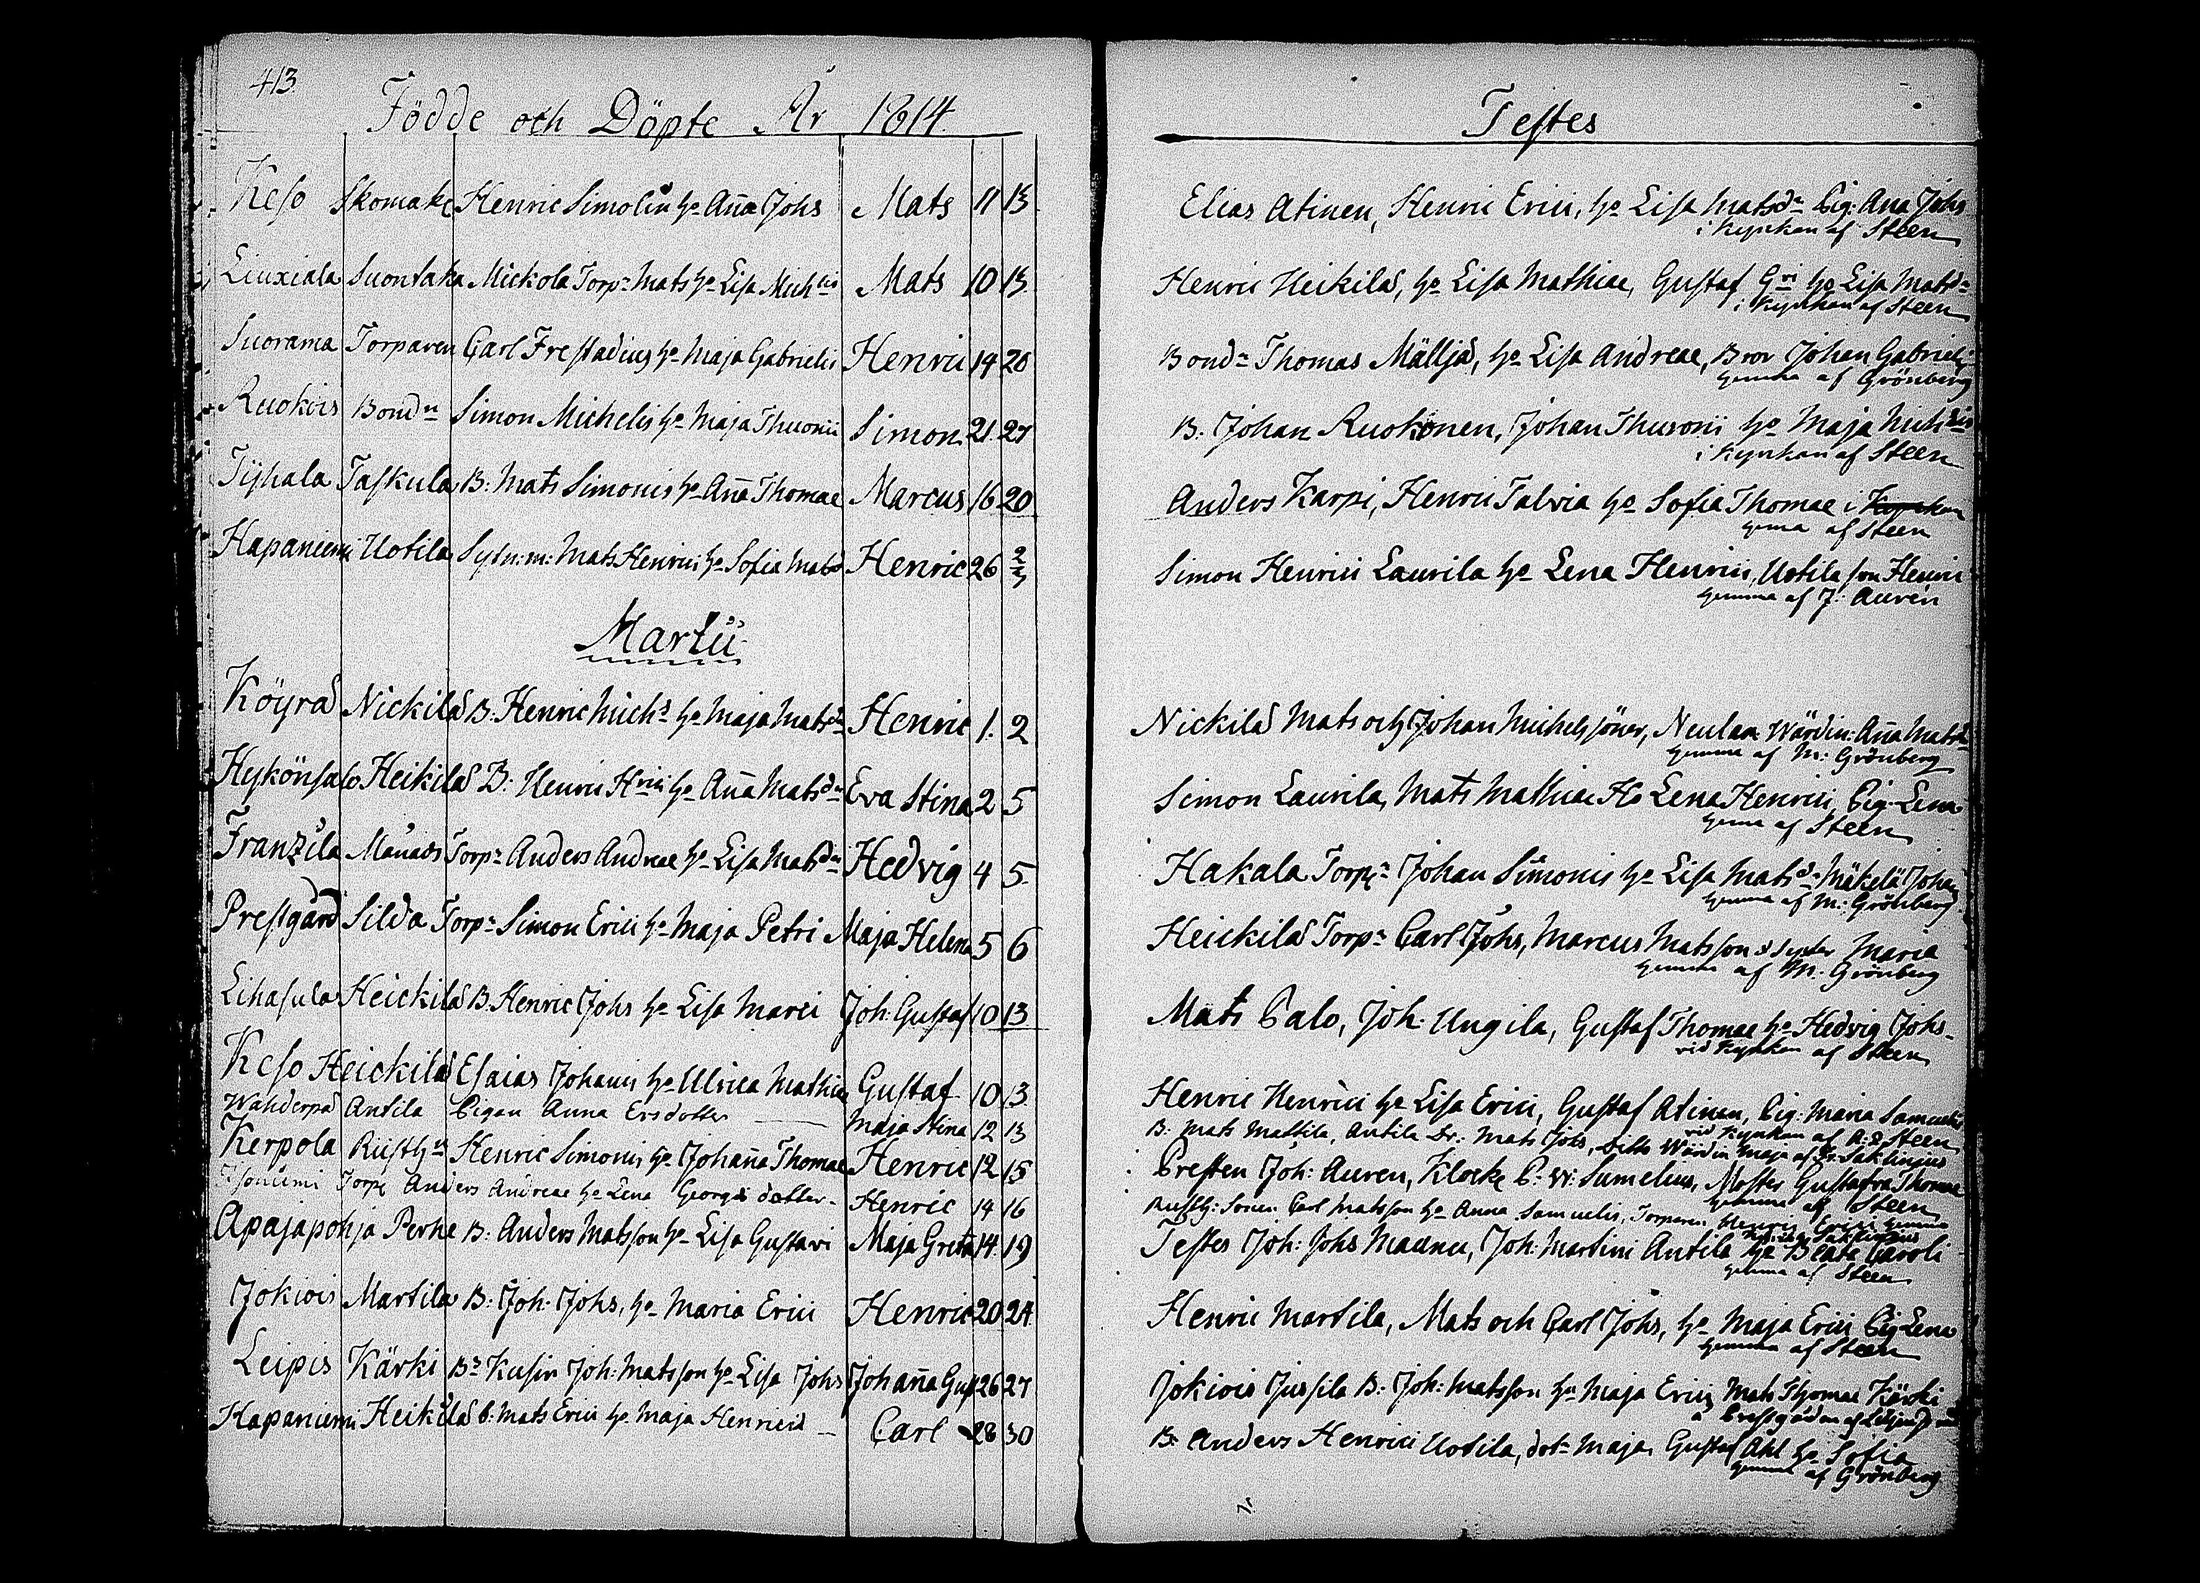 413
Födde och Döpte År 1814.
Keso Skomak Henric Simolin ho Aña Johs Mats 11 13
Liuxiala Suontaka Mickola Torp: Mats ho Lisa Mich Mats 10 13
Suorama Torparen Carl Frestadius ho Maja Gabrielis Henric 14 20
Ruokois Bond Simon Michelis ho Maja Thuronii Simon 21 27
Tijhala Taskula B: Mats Simonis ho Aña Thomae Marcus 16 20
Hapaniemi Uotila Mats Henrici ho Sofia Matsd Henric 26 2/3
Martii
Köyrä Nickilä B: Henric Michs ho Maja Matsdr Henric 1. 2
Heikilä B: Henric Hrici ho Aña Matsdr Eva Stina 2 5
Franzila Mauas Torpr Anders Andreae ho Lisa Matsdr Hedvig 4 5
Prestgård Silda Torpr Simon Erici ho Maja Petri Maja Helena 5 6
Lihasula Heickilä B. Henric Johs ho Lisa Marci Joh: Gustaf 10 13
Keso Heickilä Esaias Johanis ho Ulrica Mathiae Gustaf 10 13
Antila Pigan Anna Ersdotter Maja Stina 12 13
Kerpola Rusth Henric Simonis ho Johaña Thomae Henric 12 15
Torp Anders Andreae ho Lena Georgs dotter Henric 14 16
Apajapohja Perhe B: Anders Matsson ho Lisa Gustavi Maja Greta 14 19
Jokiois Martila B: Joh: Johs, ho Maria Erici Henric 20 24
Leipis Kärki Bs Kusin Joh: Matsson ho Lisa Johs Johaña Gus 26 27
Hapaniemi Heikilä b: Mats Erici ho Maja Henrici Carl 28 30
Testes
Elias Atinen, Henric Erici, ho Lisa Matsdr Pig: Ana Johs
i Kyrkan af Steen
Henric Heikilä, ho Lisa Mathiae, Gustaf Gri ho Lisa Matsdr
i Kyrkan af Steen
Bond Thomas Mälljä, ho Lisa Andreae, Bror Johan Gabrielis
hemma af Grönberg
B: Johan Ruokonen, Johan Thuronii ho Maja Mich
i Kyrkan af Steen
Anders Karpi, Henric Talvia ho Sofia Thomae i Kyrkan
hema af Steen
Simon Henrici Laurila ho Lena Henrici, Uotila son Henric
hemma af J: Auren
Nickilä Mats och Johan Michels söner, Wärdin: Aña Matsdr
hemma af M: Grönberg
Simon Laurila, Mats Mathiae Ho Lena Henrici, Pig: Lena
hema af Steen
Hakala Torpr Johan Simonis ho Lisa Matsdr Mäkelä Johan
hemma af M: Grönberg
Heickilä Torpr Carl Johs, Marcus Matsson Maria
hemma af M: Grönberg
Mats Palo, Joh: Ungila, Gustaf Thomae ho Hedvig Johs
vid Kyrkan af Steen
Henric Henrici ho Lisa Erici, Gustaf Atinen, Pig: Maria Samuelis
vid Kyrkan af Steen
B: Mats Mattila, Antila Mats Johs, ditto Wärdin Maja
Presten Joh: Auren, Klock P: W: Sumelius, Moster Gustafva Thomae
hemma af Steen
Rusth: Sonen Carl Matsson ho Anna Samuelis, Torparen Henric Erici hemma
Testes Joh: Johs Joh: Martini Antila ho Beata Caroli
hemma af Steen
Henric Martila, Mats och Carl Johs, ho Maja Erici Pig Lena
hemma af Steen
Jokiois Jussila B: Joh: Matsson ho Maja Erici, Mats Thomae Kärki
B: Anders Henrici Uotila, dotr Maja, Gustaf Ahl ho Sofia
hemma af Grönberg